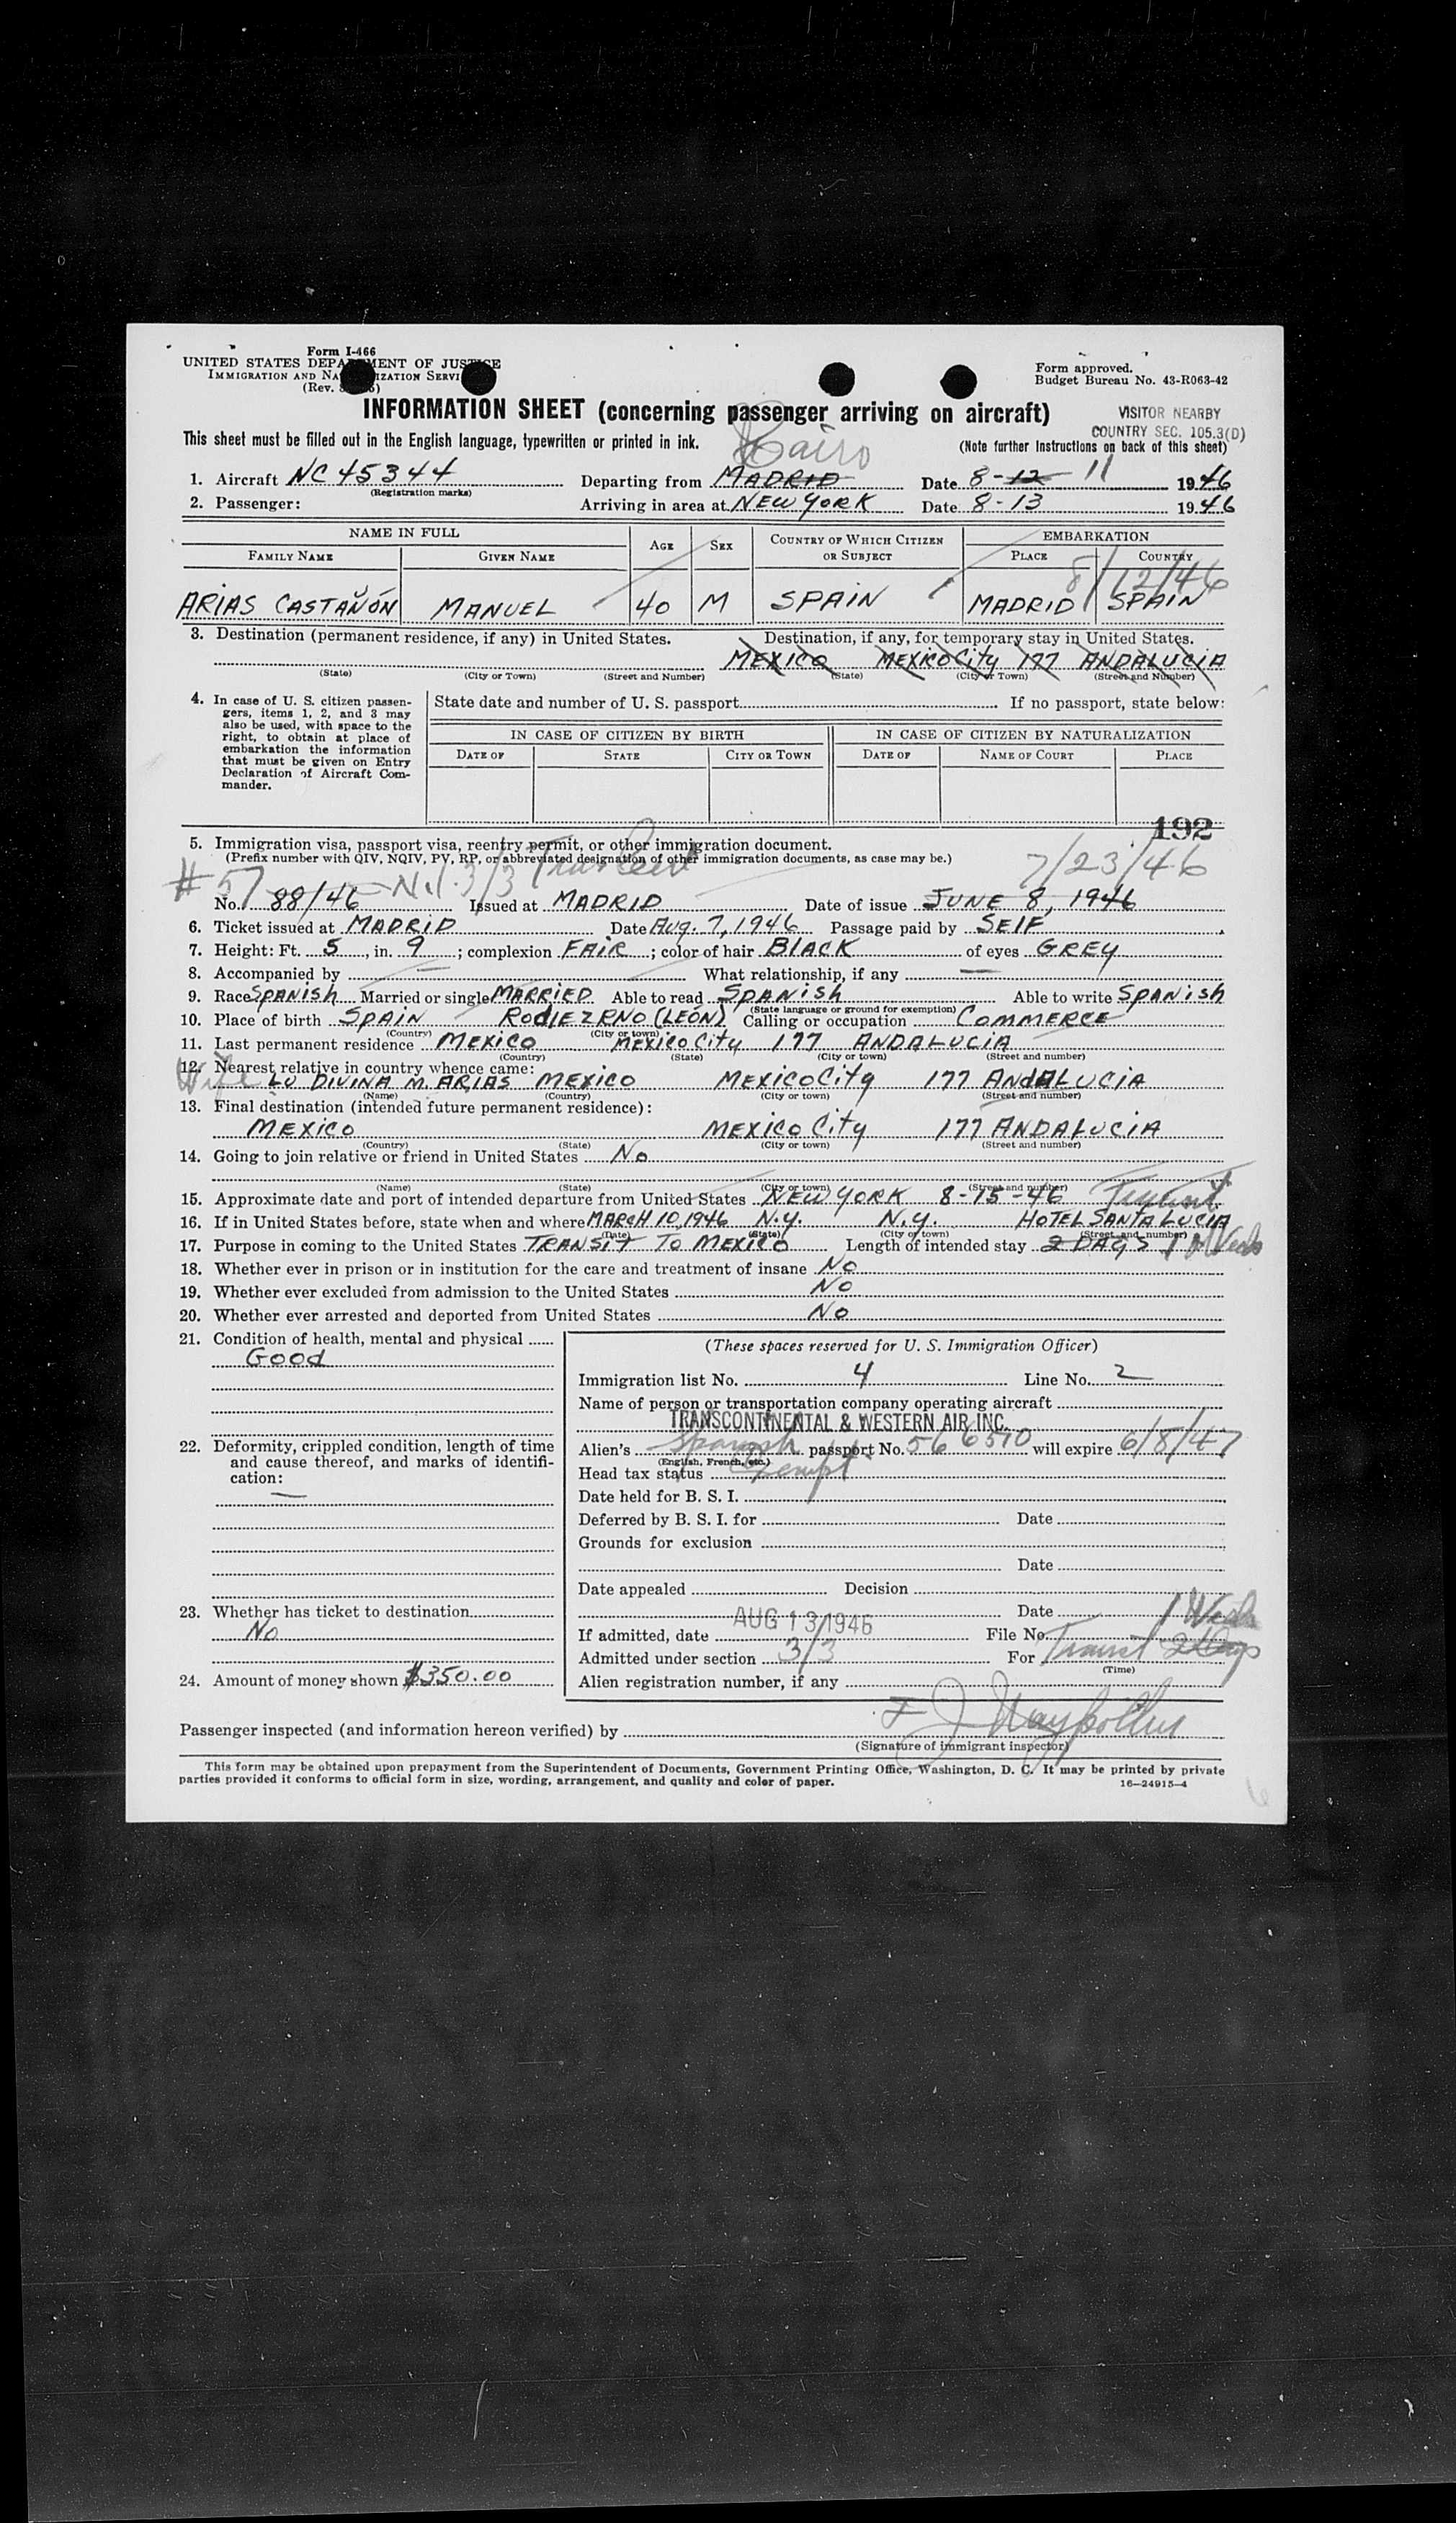 Form I-466
UNITED STATES DEPARTMENT OF JUSTICE
IMMIGRATION AND NATURALIZATION SERVICE
(Rev.
Form approved.
Budget Bureau No. 43-R063-42
INFORMATION SHEET (concerning passenger arriving on aircraft)
VISITOR NEARBY
COUNTRY SEC. 105.3(D)
This sheet must be filled out in the English language, typewritten or printed in ink.
(Note further instructions on back of this sheet)
Cairo
1. Aircraft NC 45344 Departing from MADRID Date 8-12 11 1946
(Registration marks)
2. Passenger: Arriving in area at NEW YORK Date 8-13 1946
NAME IN FULL AGE SEX COUNTRY OF WHICH CITIZEN OR SUBJECT EMBARKATION
FAMILY NAME GIVEN NAME PLACE COUNTRY
8/12/46
ARIAS CASTAÑÓN MANUEL 40 M SPAIN MADRID SPAIN
3. Destination (permanent residence, if any) in United States. Destination, if any, for temporary stay in United States.
MEXICO MEXICO City 177 ANDALUCIA
(State) (City or Town) (Street and Number) (State) (City or Town) (Street and Number)
4. In case of U. S. citizen passengers, items 1, 2, and 3 may also be used, with space to the right, to obtain at place of embarkation the information that must be given on Entry Declaration of Aircraft Commander.
State date and number of U. S. passport If no passport, state below:
IN CASE OF CITIZEN BY BIRTH IN CASE OF CITIZEN BY NATURALIZATION
DATE OF STATE CITY OR TOWN DATE OF NAME OF COURT PLACE
192
5. Immigration visa, passport visa, reentry permit, or other immigration document.
(Prefix number with QIV, NQIV, PV, RP, or abbreviated designation of other immigration documents, as case may be.)
#57 3/3 7/23/46
No. 88/46 Issued at MADRID Date of issue JUNE 8, 1946
6. Ticket issued at MADRID Date Aug. 7, 1946 Passage paid by SELF
7. Height: Ft. 5, in. 9; complexion FAIR; color of hair BLACK of eyes GREY
8. Accompanied by — What relationship, if any —
9. Race SPANISH Married or single MARRIED Able to read SPANISH Able to write SPANISH
(State language or ground for exemption)
10. Place of birth SPAIN RODIEZRNO (LEÓN) Calling or occupation COMMERCE
(Country) (City or town)
11. Last permanent residence MEXICO MEXICO City 177 ANDALUCIA
(Country) (State) (City or town) (Street and number)
12. Nearest relative in country whence came:
Wife LU DIVINA M. ARIAS MEXICO MEXICO City 177 ANDALUCIA
(Name) (Country) (City or town) (Street and number)
13. Final destination (intended future permanent residence):
MEXICO MEXICO City 177 ANDALUCIA
(Country) (State) (City or town) (Street and number)
14. Going to join relative or friend in United States No
(Name) (State) (City or town) (Street and number)
15. Approximate date and port of intended departure from United States NEW YORK 8-15-46
16. If in United States before, state when and where MARCH 10, 1946 N.Y. N.Y. HOTEL SANTA LUCIA
(Date) (State) (City or town) (Street and number)
17. Purpose in coming to the United States TRANSIT TO MEXICO Length of intended stay 2 DAYS
18. Whether ever in prison or in institution for the care and treatment of insane No
19. Whether ever excluded from admission to the United States No
20. Whether ever arrested and deported from United States No
21. Condition of health, mental and physical
Good
22. Deformity, crippled condition, length of time and cause thereof, and marks of identification:
—
23. Whether has ticket to destination
No
24. Amount of money shown $350.00
(These spaces reserved for U. S. Immigration Officer)
Immigration list No. 4 Line No. 2
Name of person or transportation company operating aircraft
TRANSCONTINENTAL & WESTERN AIR INC.
Alien's Spanish passport No. 56 6570 will expire 6/8/47
(English, French, etc.)
Head tax status Exempt
Date held for B. S. I.
Deferred by B. S. I. for Date
Grounds for exclusion
Date
Date appealed Decision
Date 1 Week
If admitted, date AUG 13 1946 File No.
Admitted under section 3/3 For Transit 2 Days
(Time)
Alien registration number, if any
Passenger inspected (and information hereon verified) by
(Signature of immigrant inspector)
This form may be obtained upon prepayment from the Superintendent of Documents, Government Printing Office, Washington, D. C. It may be printed by private
parties provided it conforms to official form in size, wording, arrangement, and quality and color of paper. 16—24915-4